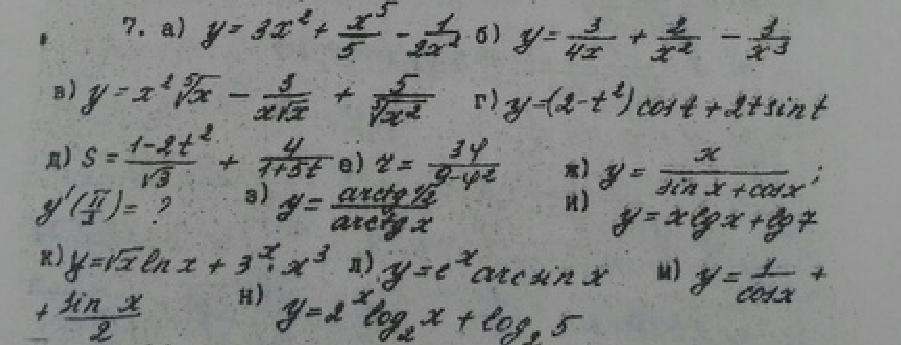 7. а) y = 3x² + x⁵/5 - 1/2x² б) y = 3/4x + 2/x² - 1/x³
в) y = x² ⁵√x - 3/x√x + 5/∛x² г) y = (2-t²) cos t + 2t sin t
д) S = 1-2t²/√3 + 4/1+5t е) r = 3φ/9-φ² ж) y = x/sin x + cos x;
y'(π/2) = ? з) y = /arcctg x и) y = x lg x + lg 7
к) y = √x ln x + 3ˣ · x³ л) y = eˣ arcsin x м) y = 1/cos x +
+ sin x/2 н) y = 2ˣ log₂ x + log₂ 5